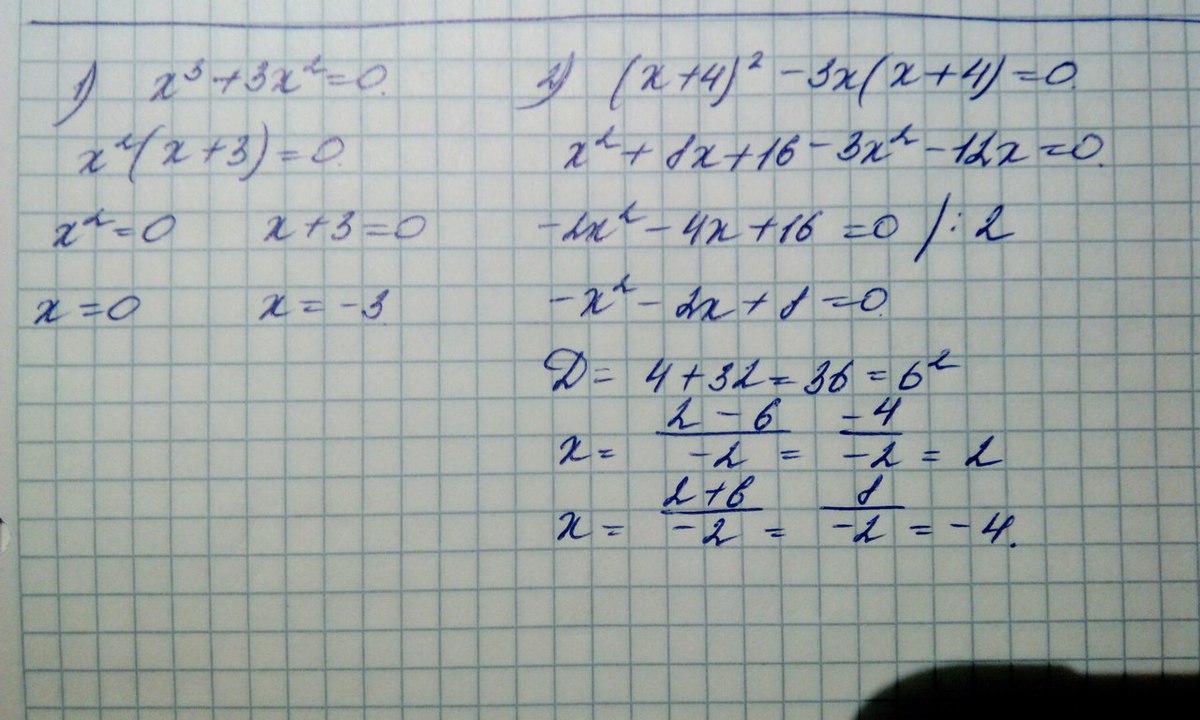 1) x³ + 3x² = 0.
x²(x + 3) = 0.
x² = 0 x + 3 = 0
x = 0 x = -3
2) (x + 4)² - 3x(x + 4) = 0.
x² + 8x + 16 - 3x² - 12x = 0.
-2x² - 4x + 16 = 0 /: 2
-x² - 2x + 8 = 0.
D = 4 + 32 = 36 = 6²
x = (2 - 6)/(-2) = (-4)/(-2) = 2
x = (2 + 6)/(-2) = 8/(-2) = -4.